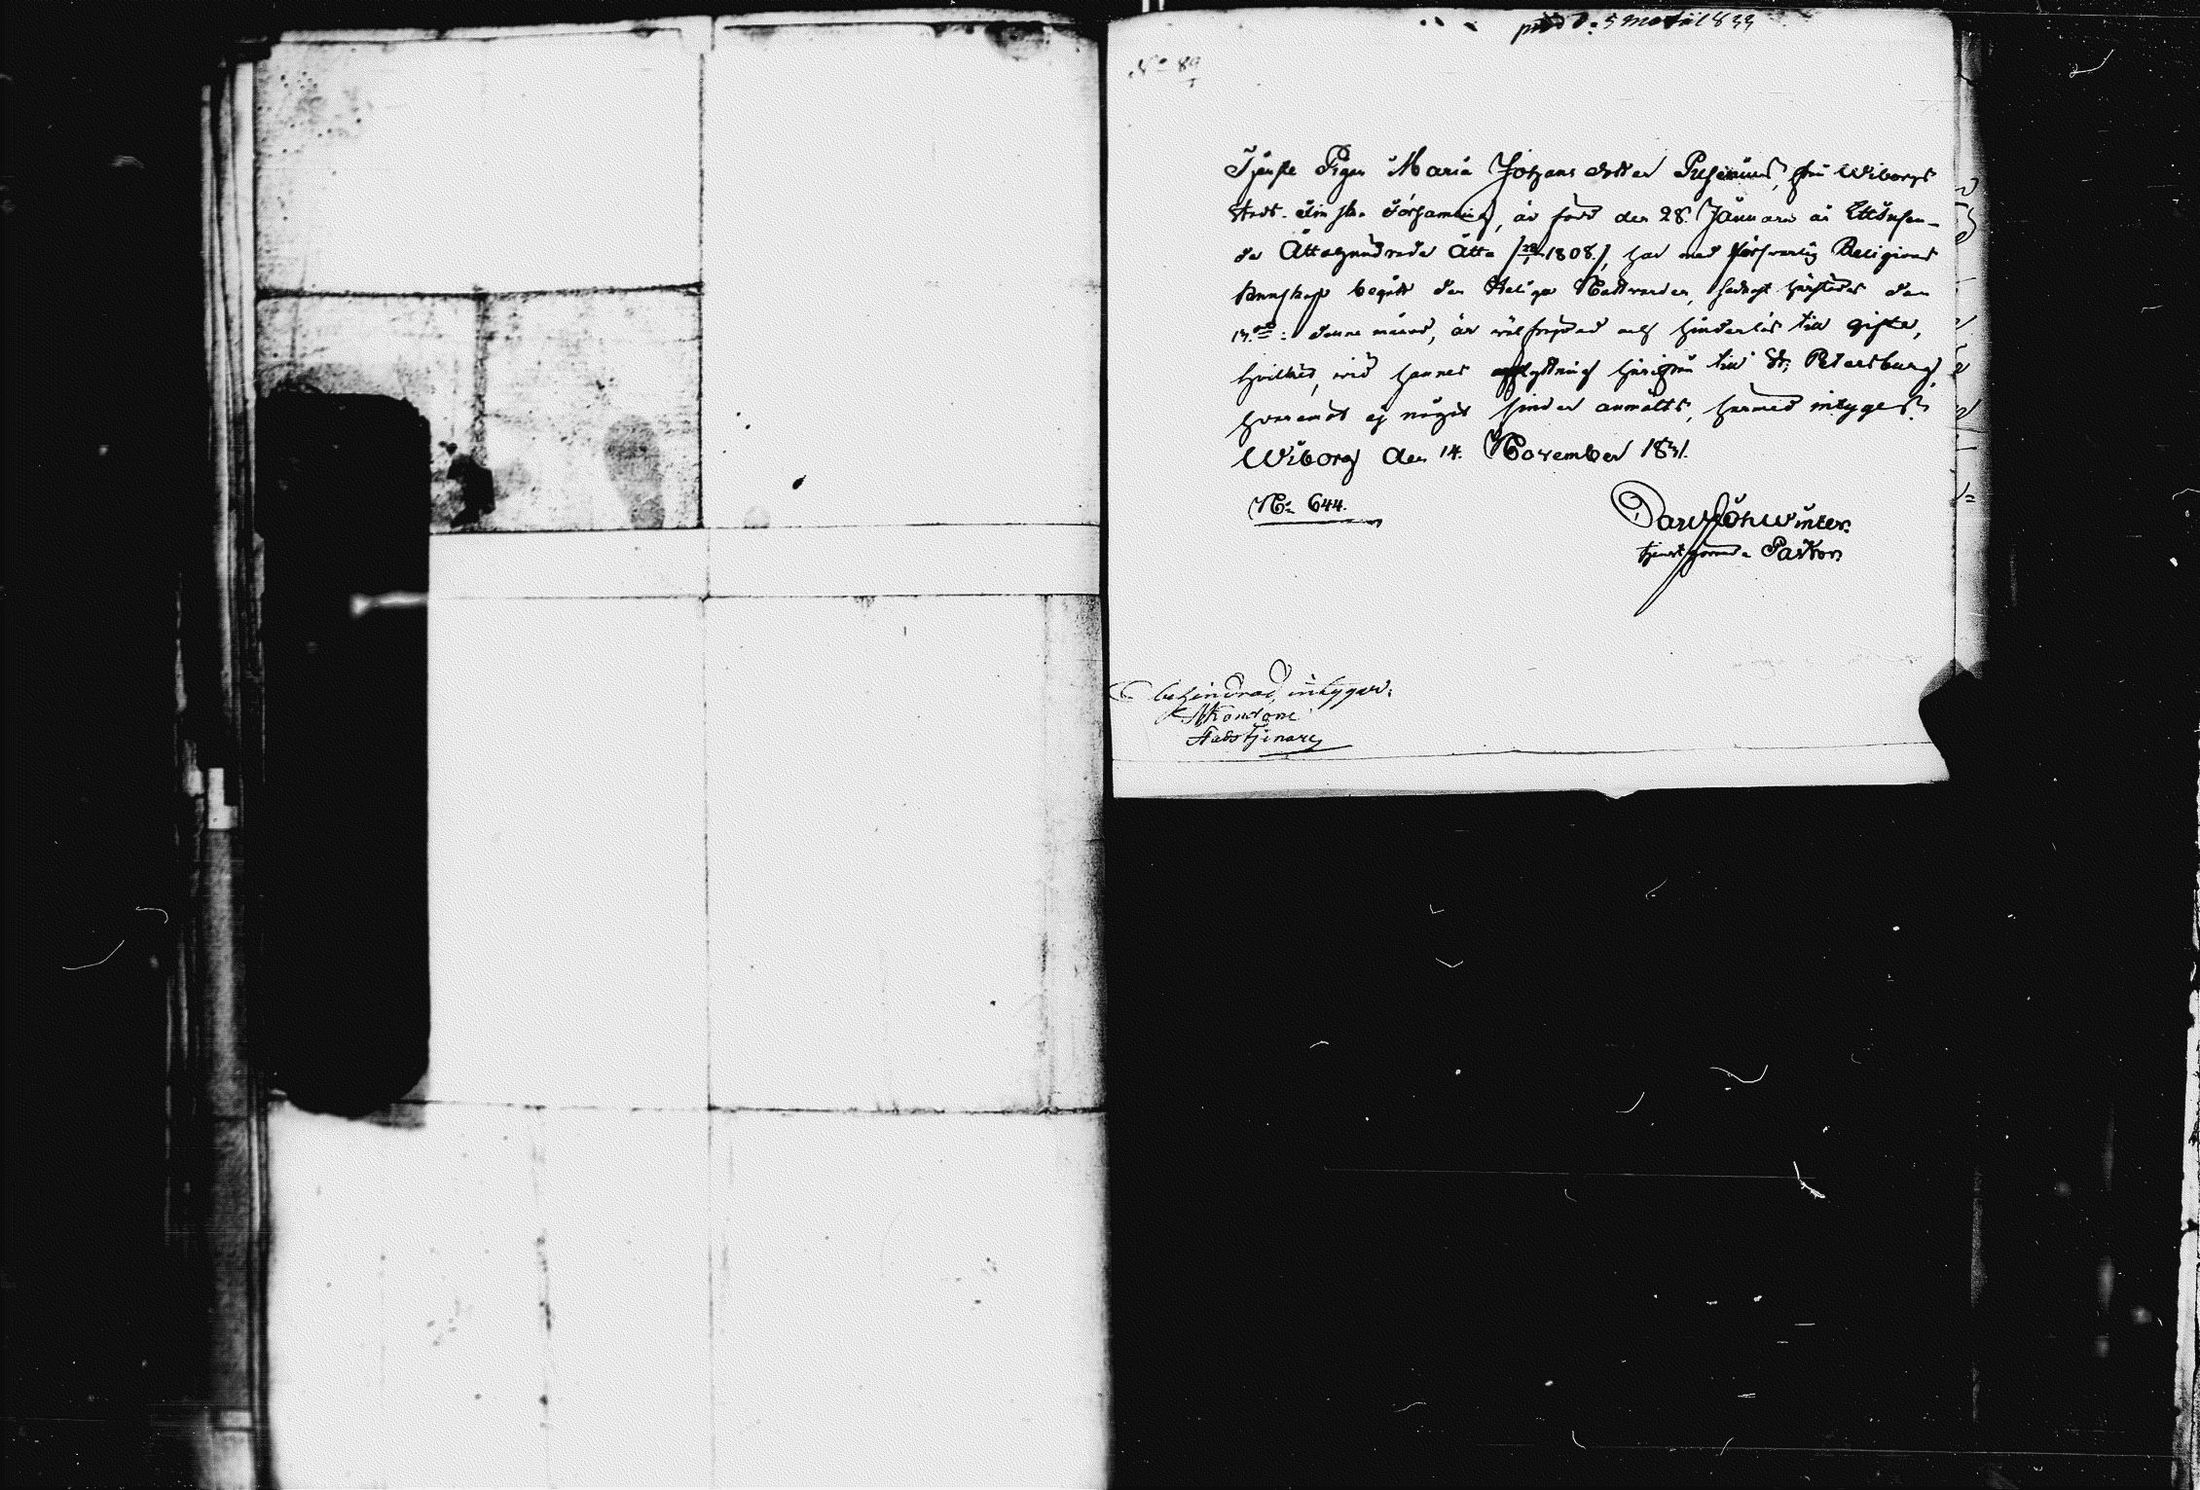 N:o 89
Tjenste Pigan Maria Johans dotter från Wiborgs
Stads Finska Församling, är född den 28. Januarii år Ettusen-
de Åttahundrade Åtta /28/1 1808./, har med försvarlig Religions
kunskap begått den Heliga Nattvarden, sednast härstädes den
denne månad, är välfrejdad och hinderlös till gifte,
hvilket, vid hennes afflyttning härifrån till St. Petersburg,
hvaremot ej något hinder anmälts, härmed intygas.
Wiborg den 14. November 1831.
No: 644.
tjenstgörande Pastor
obehindrad, intygar:
Stadstjenare